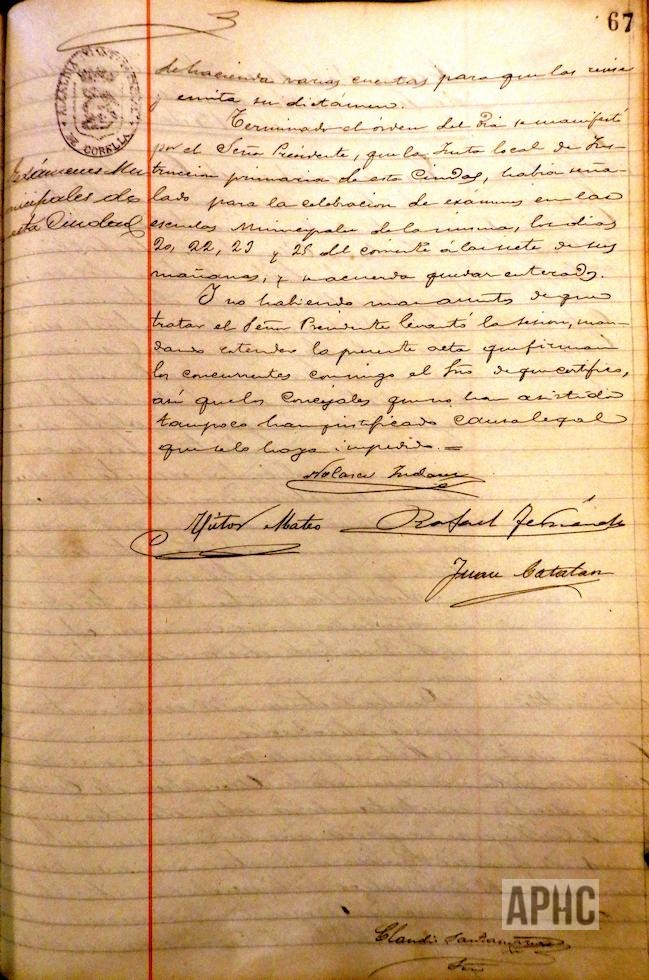 67
ALCALDIA CONSTITUCIONAL DE CORELLA
Exámenes Mu-
nicipales de
esta Ciudad
de hacienda varias cuentas para que las revise
y emita su dictámen.
Terminado el órden del dia se manifestó
por el Señor Presidente, que la Junta local de Ins-
truccion primaria de esta Ciudad, habia seña-
lado para la celebracion de examenes en las
escuelas Municipales de la misma, los dias
20, 22, 23 y 25 del corriente á las siete de sus
mañanas, y se acuerda quedar enterados.
Y no habiendo mas asuntos de que
tratar el Señor Presidente levantó la sesion, man-
dando estender la presente acta que firman
los concurrentes conmigo el Srio de que certifico,
así que los Concejales que no han asistido
tampoco han justificado causa legal
que se lo haya impedido.=
Nolasco
Victor Mateo
Rafael Fernández
Juan Catalan
APHC
Claudio
Srio